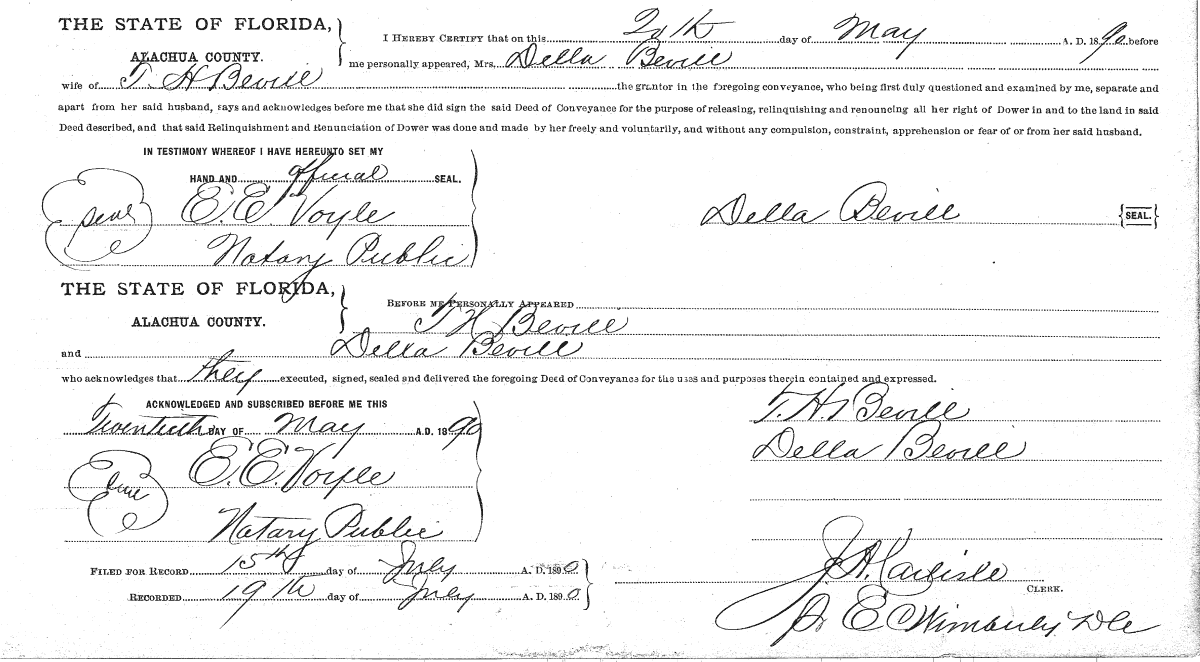 THE STATE OF FLORIDA,
ALACHUA COUNTY.
I HEREBY CERTIFY that on this 20th day of May A. D. 1890 before
me personally appeared, Mrs. Della Bevill
wife of T. H Bevill the grantor in the foregoing conveyance, who being first duly questioned and examined by me, separate and
apart from her said husband, says and acknowledges before me that she did sign the said Deed of Conveyance for the purpose of releasing, relinquishing and renouncing all her right of Dower in and to the land in said
Deed described, and that said Relinquishment and Renunciation of Dower was done and made by her freely and voluntarily, and without any compulsion, constraint, apprehension or fear of or from her said husband.
IN TESTIMONY WHEREOF I HAVE HEREUNTO SET MY
HAND AND official SEAL.
Seal E. E. Voyle
Della Bevill {SEAL.}
Notary Public
THE STATE OF FLORIDA,
ALACHUA COUNTY.
BEFORE ME PERSONALLY APPEARED
T H Bevill
and Della Bevill
who acknowledges that they executed, signed, sealed and delivered the foregoing Deed of Conveyance for the uses and purposes therein contained and expressed.
ACKNOWLEDGED AND SUBSCRIBED BEFORE ME THIS
Twentieth DAY OF May A.D. 1890
T. H. Bevill
Della Bevill
Seal E. E. Voyle
Notary Public
FILED FOR RECORD 15th day of July A. D. 1890
RECORDED 19th day of July A. D. 1890
J. A. Carlisle
CLERK.
E Wimberly DC